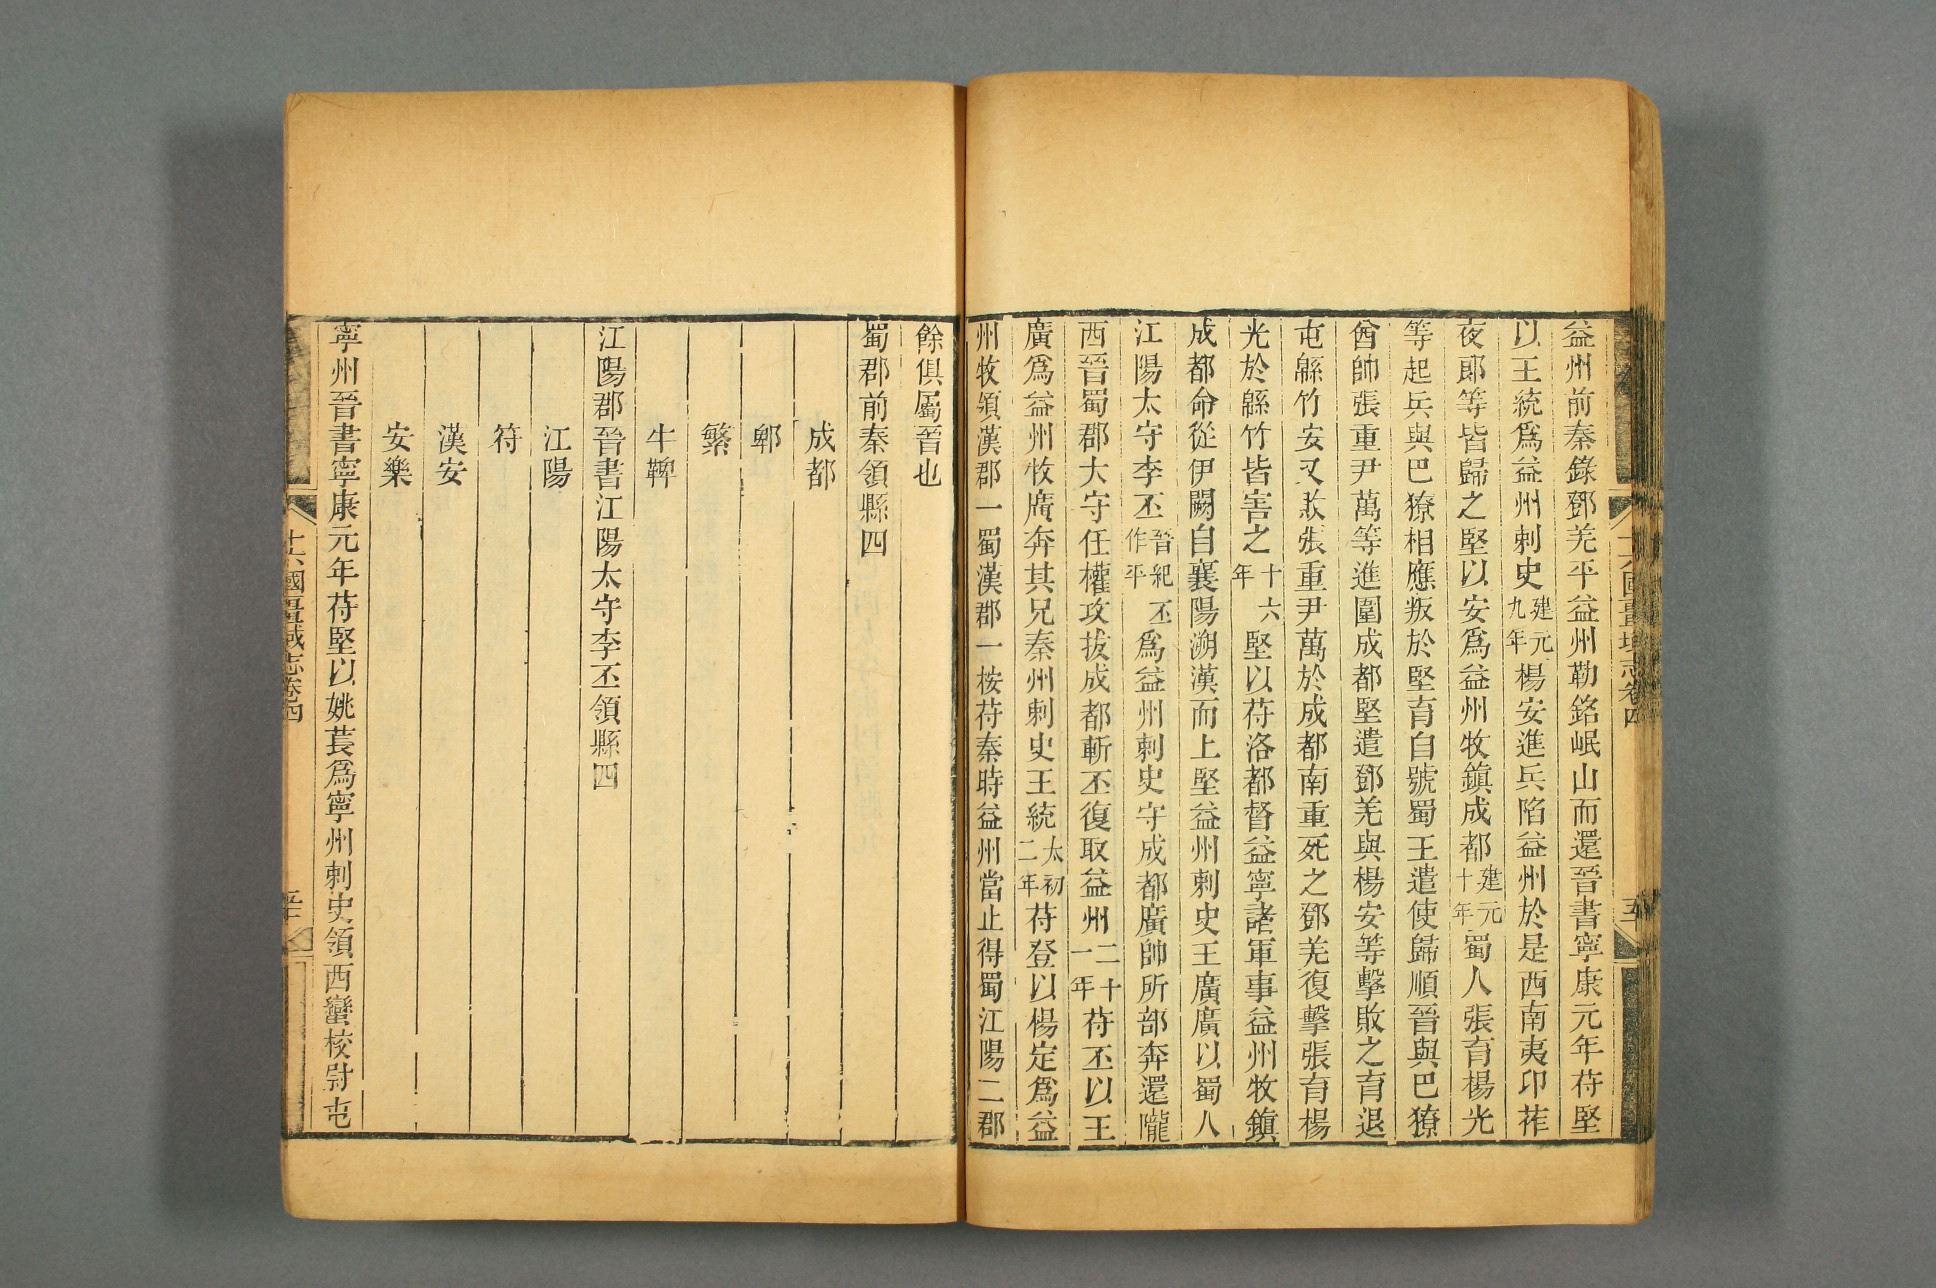 益州前秦錄鄧羌平益州勒銘岷山而還晉書寧康元年苻堅
以王統爲益州刺史建元九年楊安進兵陷益州於是西南夷卭莋
夜郎等皆歸之堅以安爲益州牧鎭成都建元十年蜀人張育楊光
等起兵與巴獠相應叛於堅育自號蜀王遣使歸順晉與巴獠
酋帥張重尹萬等進圍成都堅遣鄧羌與楊安等擊敗之育退
屯緜竹安又敗張重尹萬於成都南重死之鄧羌復擊張育楊
光於緜竹皆害之十六年堅以苻洛都督益寧諸軍事益州牧鎭
成都命從伊闕自襄陽溯漢而上堅益州刺史王廣廣以蜀人
江陽太守李丕晉紀作平丕爲益州刺史守成都廣帥所部奔還隴
西晉蜀郡大守任權攻拔成都斬丕復取益州二十一年苻丕以王
廣爲益州牧廣奔其兄秦州刺史王統太初二年苻登以楊定爲益
州牧領漢郡一蜀漢郡一桉苻秦時益州當止得蜀江陽二郡
餘俱屬晉也
蜀郡前秦領縣四
成都
郫
繁
牛鞞
江陽郡晉書江陽太守李丕領縣四
江陽
符
漢安
安樂
寧州晉書寧康元年苻堅以姚萇爲寧州刺史領西蠻校尉屯
十六國疆域志卷四
五
十六國疆域志卷四